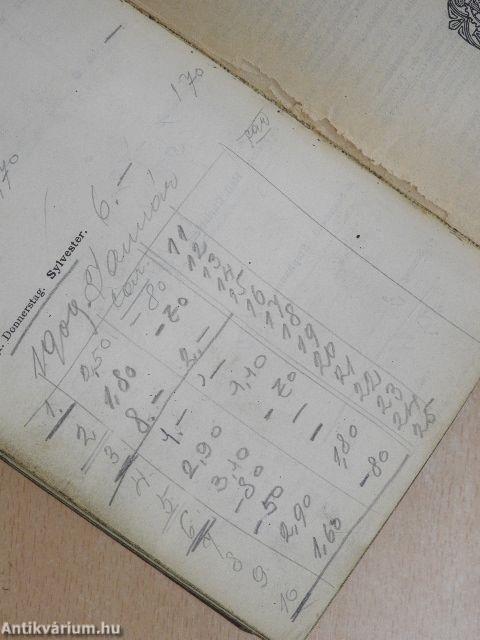 Donnerstag. Sylvester. 6.— 170
1909 Január
1. 0,50 —80 11
2 1,80 —20 12
3 8.— 2.— 13
4 1.— 1.— 14
5 2,90 1,10 15
6. 3,10 —20 16
7 —80 — 17
8 —50 — 18
9 2,90 1,80 19
10 1,60 —80 20
21
22
23
24
25